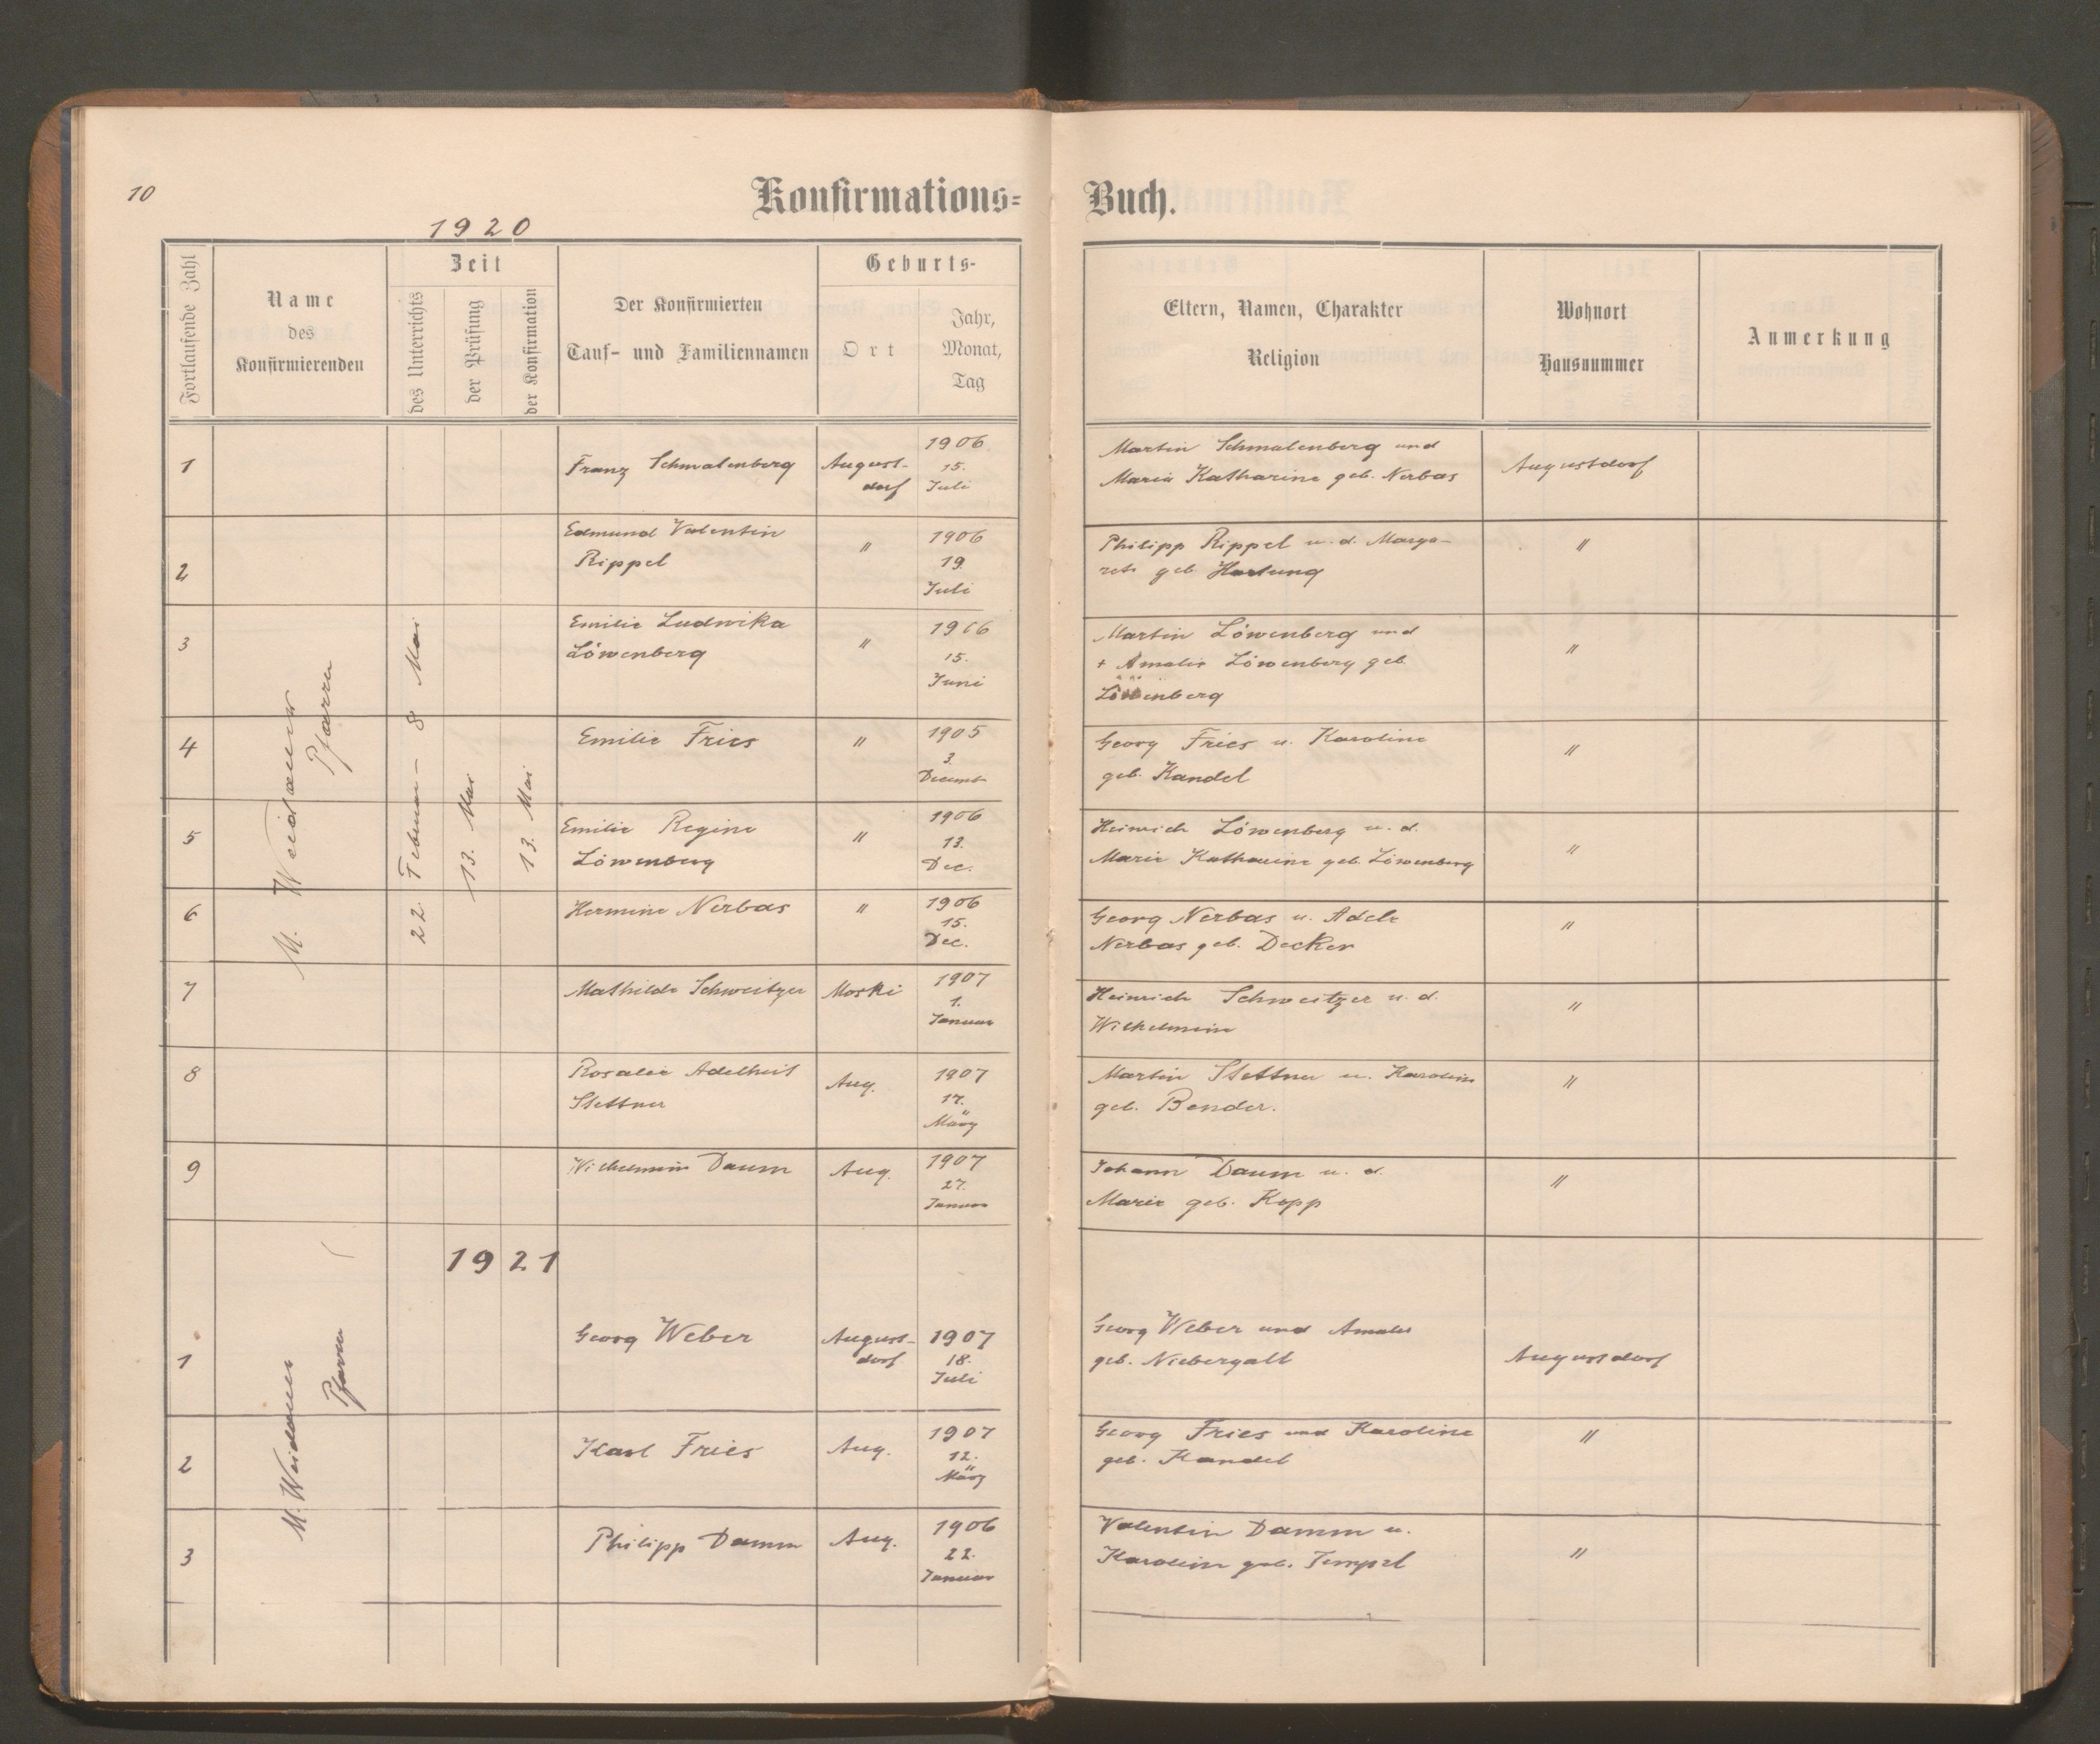 10
Konfirmations=
Buch.
1920
Fortlaufende Zahl
Name
des
Konfirmierenden
Zeit
des Unterrichts
der Prüfung
der Konfirmation
Der Konfirmierten
Tauf- und Familiennamen
Geburts-
Ort
Jahr,
Monat,
Tag
Eltern, Namen, Charakter
Religion
Wohnort
Hausnummer
Anmerkung
M. Weidauer
Pfarrer
22. Februar – 8 Mai
13. Mai
13. Mai
1
Franz Schmalenberg
August-
dorf
1906
15.
Juli
Martin Schmalenberg und
Maria Katharine geb. Nerbas
Augustdorf
2
Edmund Valentin
Rippel
"
1906
19.
Juli
Philipp Rippel u. d. Marga-
rete geb. Hartung
"
3
Emilie Ludwika
Löwenberg
"
1906
15.
Juni
Martin Löwenberg und
+ Amalie Löwenberg geb.
Löwenberg
"
4
Emilie Fries
"
1905
3.
Decemb.
Georg Fries u. Karoline
geb. Kandel
"
5
Emilie Regine
Löwenberg
"
1906
13.
Dec.
Heinrich Löwenberg u. d.
Marie Katharine geb. Löwenberg
"
6
Hermine Nerbas
"
1906
15.
Dec.
Georg Nerbas u. Adele
Nerbas geb. Decker
"
7
Mathilde Schweitzer
Moski
1907
1.
Januar
Heinrich Schweitzer u. d.
Wilhelmine
"
8
Rosalie Adelheit
Stettner
Aug.
1907
17.
März
Martin Stettner u. Karoline
geb. Bender.
"
9
Wilhelmine Daum
Aug.
1907
27.
Januar
Johann Daum u. d.
Marie geb. Kopp
"
1921
M. Weidauer
Pfarrer
1
Georg Weber
August-
dorf
1907
18.
Juli
Georg Weber und Amalie
geb. Niebergall
Augustdorf
2
Karl Fries
Aug.
1907
12.
März
Georg Fries und Karoline
geb. Kandel
"
3
Philipp Damm
Aug.
1906
22.
Januar
Valentin Damm u.
Karoline geb. Tempel
"